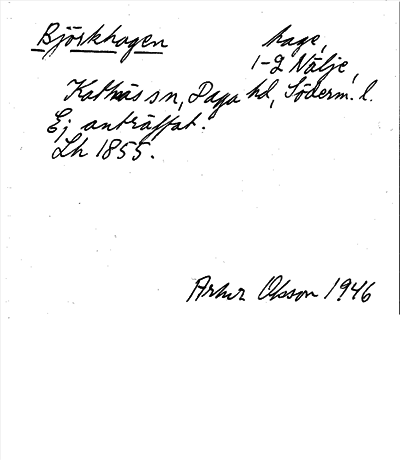 Björkhagen hage,
1-2 Nälje,
Kattnäs sn, Daga hd, Söderm. l.
Ej anträffat.
Lh 1855.
Artur Olsson 1946